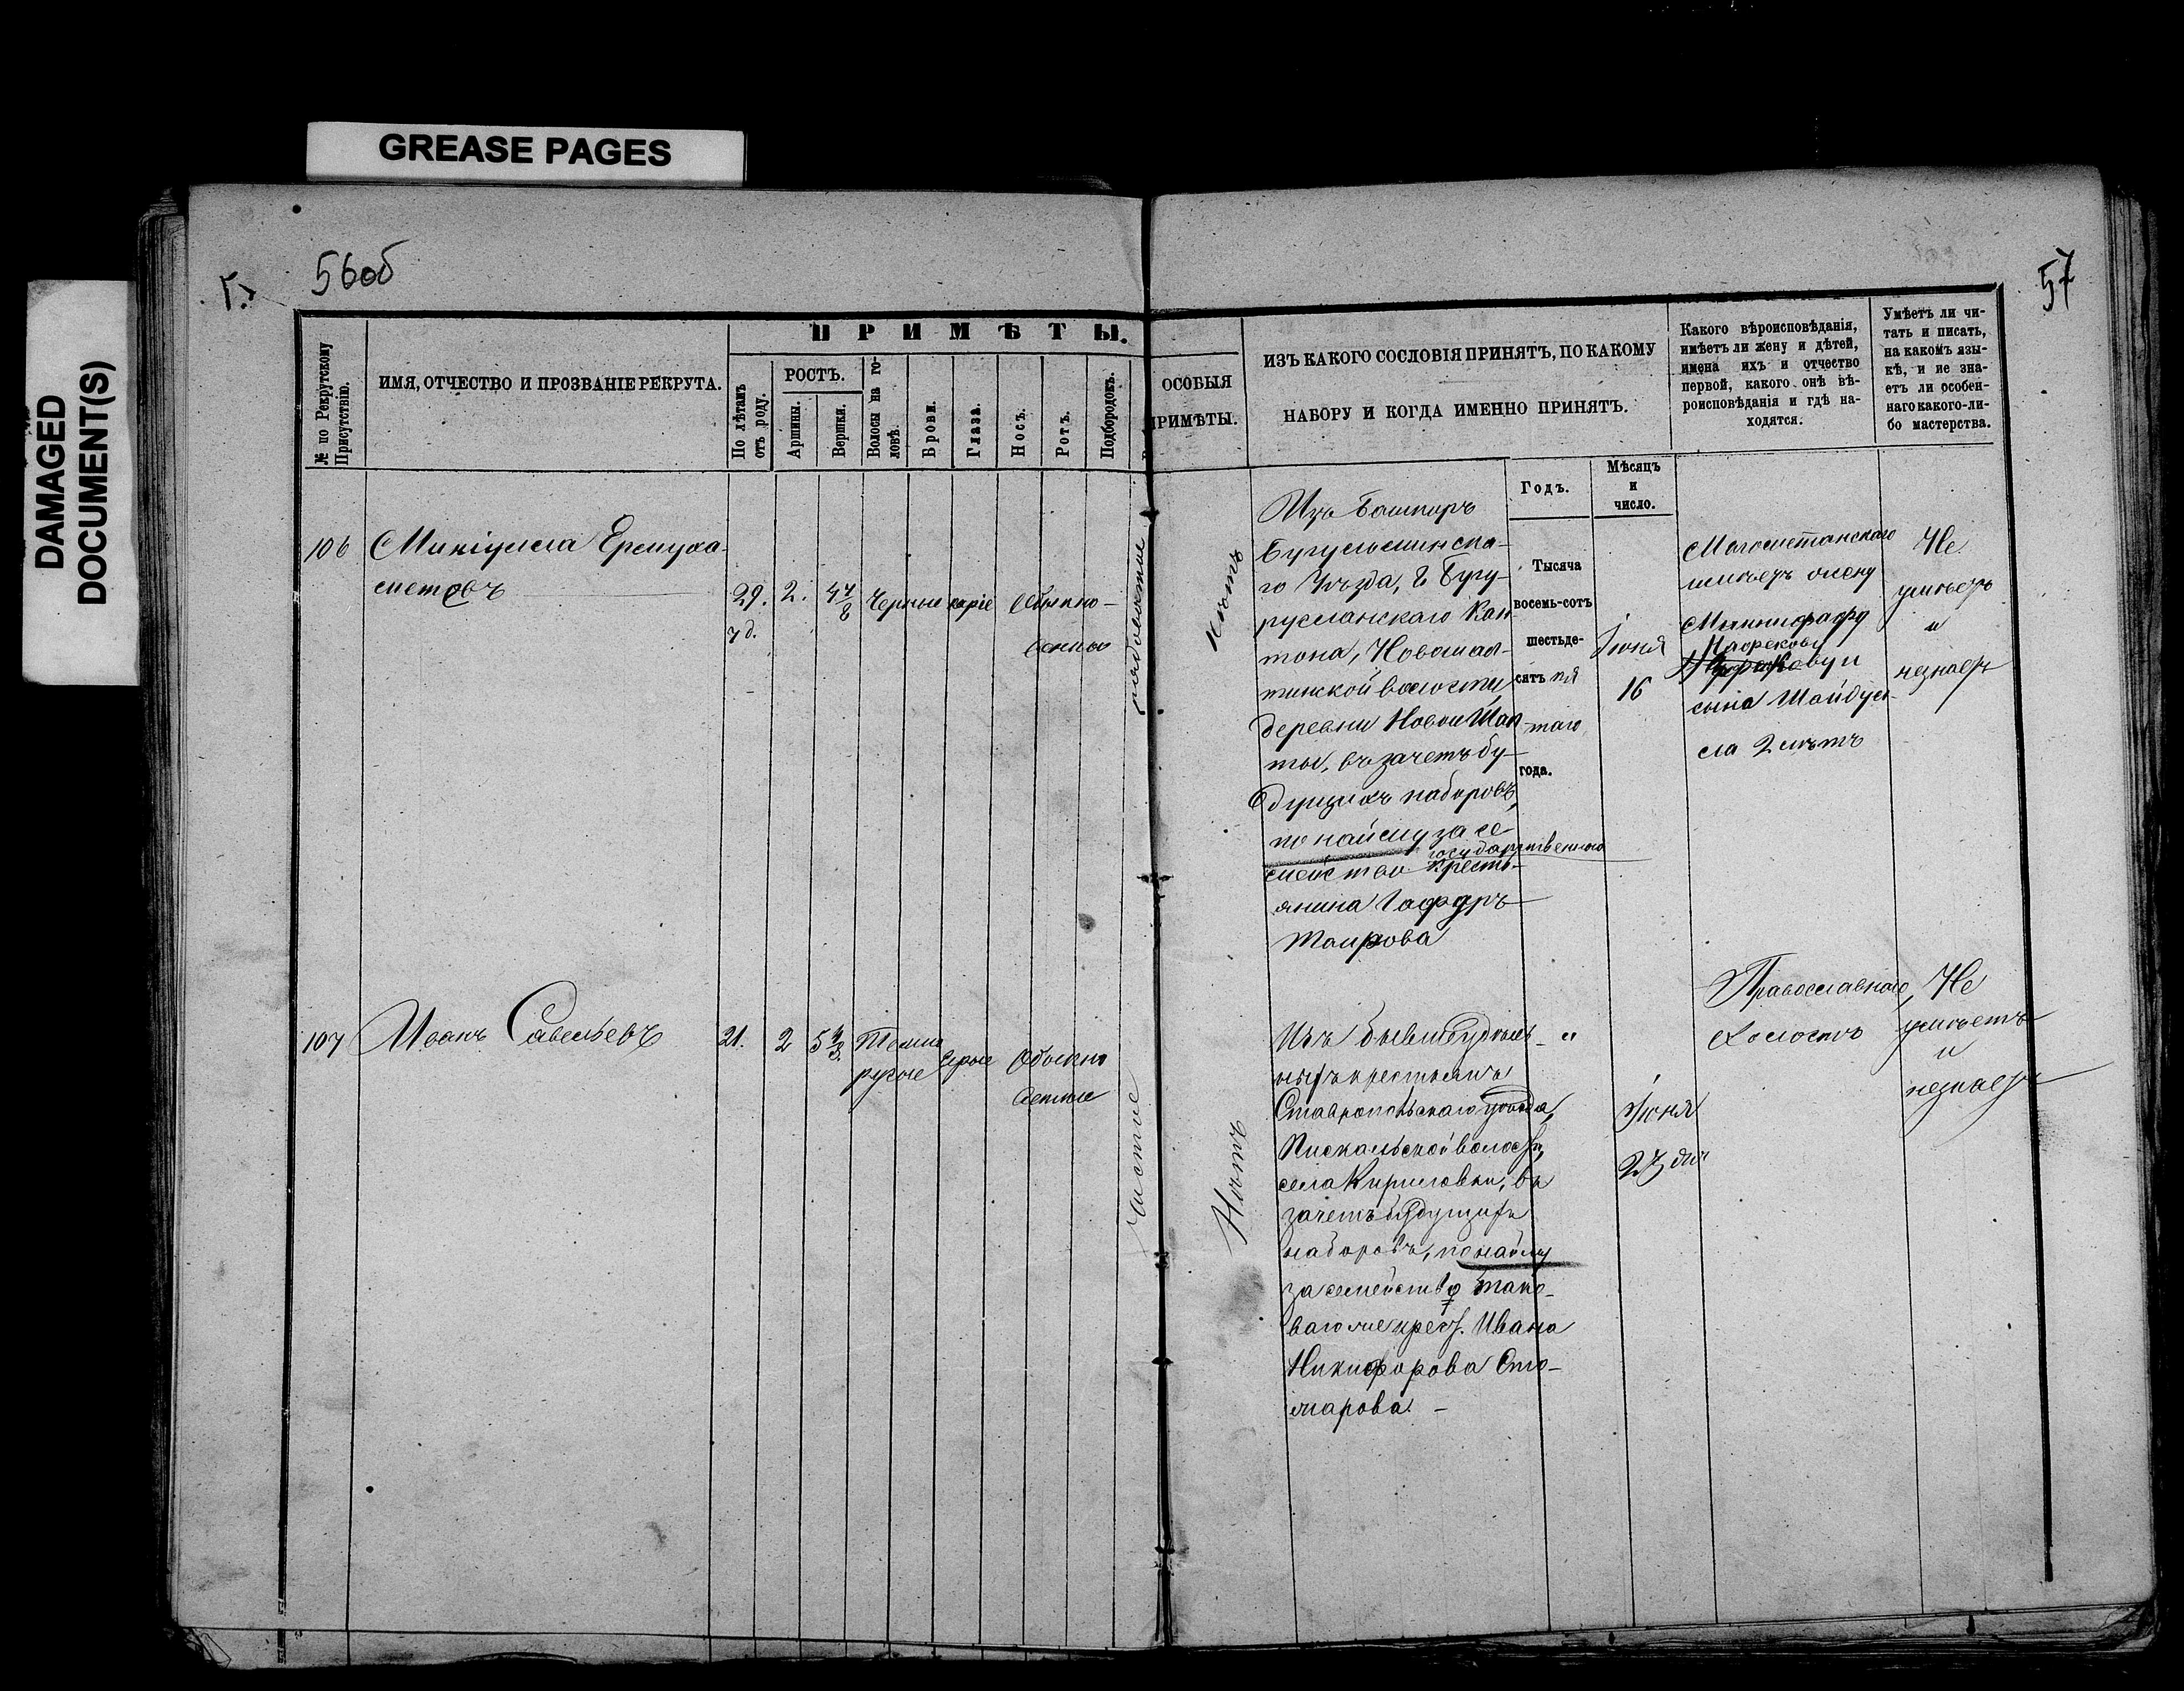 GREASE PAGES
DAMAGED
DOCUMENT(S)
56об
57
№ по Рекрутскому
Присутствію.
ИМЯ, ОТЧЕСТВО И ПРОЗВАНІЕ РЕКРУТА.
ПРИМѢТЫ.
По лѣтамъ
отъ роду.
РОСТЪ.
Аршины.
Вершки.
Волосы на го-
ловѣ.
Брови.
Глаза.
Носъ.
Ротъ.
Подбородокъ.
ОСОБЫЯ
ПРИМѢТЫ.
ИЗЪ КАКОГО СОСЛОВІЯ ПРИНЯТЪ, ПО КАКОМУ
НАБОРУ И КОГДА ИМЕННО ПРИНЯТЪ.
Какого вѣроисповѣданія,
имѣетъ ли жену и дѣтей,
имена ихъ и отчество
первой, какого онѣ вѣ-
роисповѣданія и гдѣ на-
ходятся.
Умѣетъ ли чи-
тать и писать,
на какомъ язы-
кѣ, и не зна-
етъ ли особен-
наго какого-ли-
бо мастерства.
Годъ.
Мѣсяцъ
и
число.
106
29.
2.
4 4/8
Черные
каріе
Обыкно-
венные
нѣтъ
Изъ Башкиръ
Бугульминска-
го Уѣзда,
русланскаго Кан
тона,
тинской волости
деревни Новой Шал-
ты, въ зачетъ бу-
дущихъ наборовъ,
по найму за се-
государственнаго
мейство кресть-
янина
Таирова
Тысяча
восемь-сотъ
шестьде-
сятъ пя
таго
года.
Іюня
16
Магометанскаго
имѣетъ жену
сына
2 лѣтъ
Не
умѣетъ
и
незнаетъ
107
Иванъ Савельевъ
21.
2
5
Темно
русые
серые
Обыкно
венные
Чистые
Нѣтъ
Изъ бывш удѣль-
ныхъ крестьянъ
Ставропольскаго уѣзда,
Пискальской волости,
села Кириловки, въ
зачетъ будущихъ
наборовъ, по найму
за семейство тако-
ваго же крест. Ивана
Никифорова Сто-
лярова. -
"
Іюня
Православнаго,
Холостъ
Не
умѣетъ
и
незнаетъ